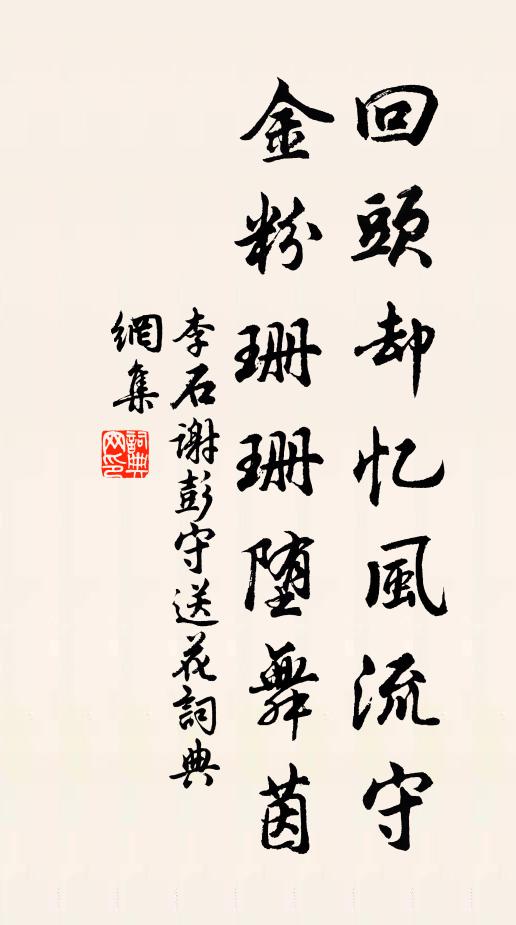 回頭却忆風流守
金粉珊珊堕舞茵
李石谢彭守送花詞典
網集
詞典网